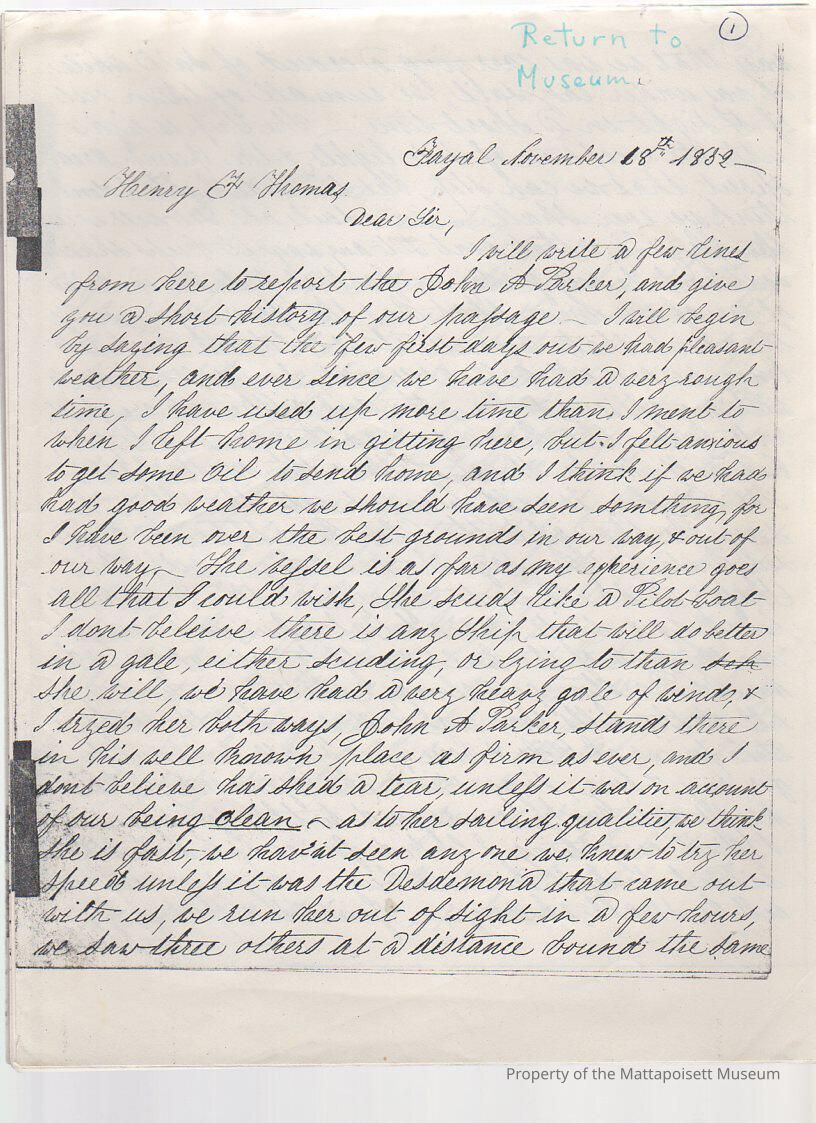 Return to
Museum.
1
Fayal November 18th 1832 —
Henry F Thomas
Dear Sir,
I will write a few lines
from here to report the John A Parker, and give
you a short history of our passage — I will begin
by saying that the few first days out we had pleasant
weather, and ever since we have had a very rough
time, I have used up more time than I ment to
when I left home in gitting here, but I felt anxious
to get some Oil to send home, and I think if we had
had good weather we should have seen somthing, for
I have been over the best grounds in our way, & out of
our way, — The vessel is as far as my experience goes
all that I could wish, She scuds like a Pilot boat
I dont beleive there is any Ship that will do better
in a gale, either scuding, or lying to than sch
she will, we have had a very heavy gale of wind, &
I tryed her both ways, John A Parker, stands there
in his well known place as firm as ever, and I
dont believe has shed a tear, unless it was on account
of our being clean — as to her sailing qualities, we think
she is fast, we hav'nt seen any one we knew to try her
speed unless it was the Desdemona that came out
with us, we run her out of sight in a few hours,
we saw three others at a distance bound the same
Property of the Mattapoisett Museum